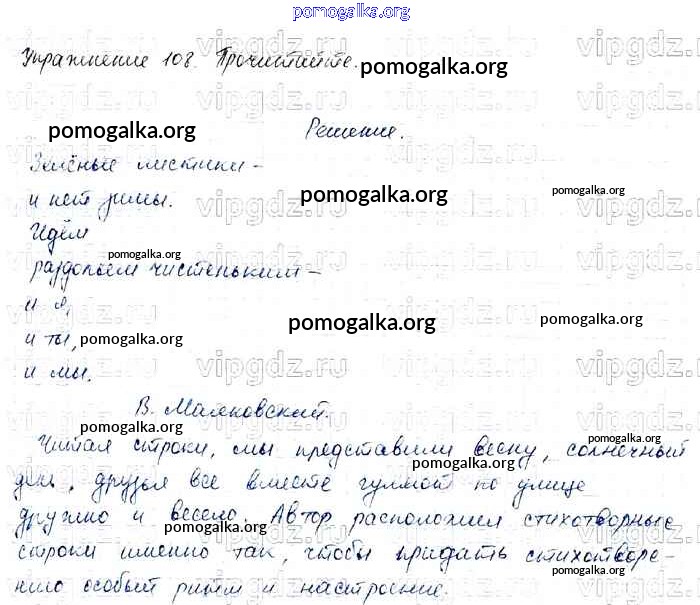 pomogalka.org
Упражнение 108. Прочитайте.
pomogalka.org
pomogalka.org
Решение.
Зелёные листики -
pomogalka.org
pomogalka.org
и нет зимы.
vipgdz.ru vipgdz.ru vipgdz.ru
Идём
pomogalka.org
раздольем чистеньким -
vipgdz.ru vipgdz.ru vipgdz.ru
и я,
pomogalka.org
pomogalka.org
и ты,
pomogalka.org
vipgdz.ru vipgdz.ru
и мы.
В. Маяковский.
pomogalka.org
pomogalka.org
Читая строки, мы представили весну, солнечный
pomogalka.org
день, друзья все вместе гуляют по улице
дружно и весело. Автор расположил стихотворные
pomogalka.org
строки именно так, чтобы придать стихотворе-
pomogalka.org
нию особый ритм и настроение.